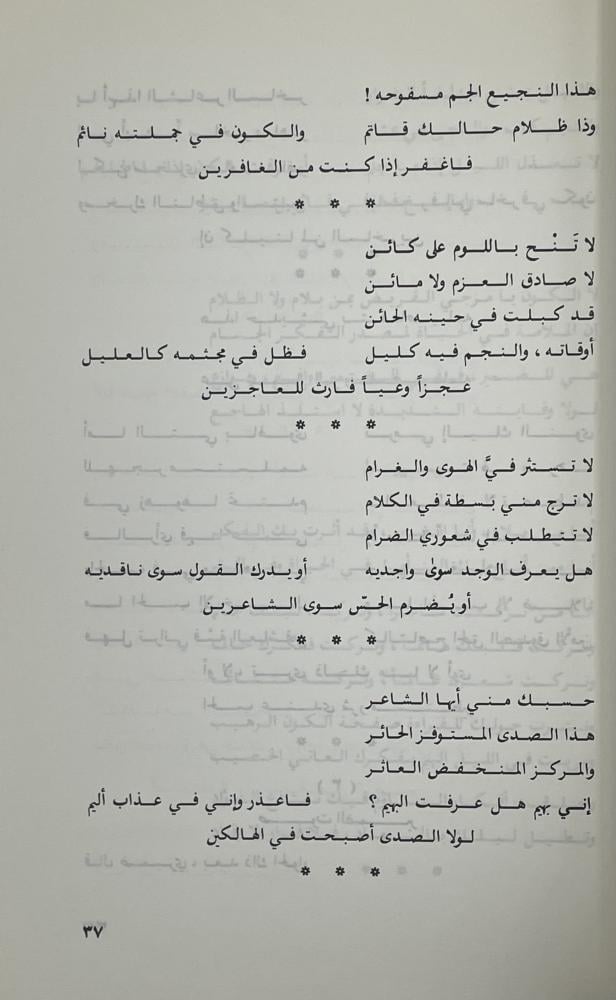 هذا النجيع الجم مسفوحه !
وذا ظلام حالك قاتم والكون في جملته نائم
فاغفر إذا كنت من الغافرين
* * *
لا تَنْحِ باللوم على كائن
لا صادق العزم ولا مائن
قد كبلت في حينه الحائن
أوقاته ، والنجم فيه كليل فظل في مجثمه كالعليل
عجزاً وعياً فارث للعاجزين
* * *
لا تستثر فيَّ الهوى والغرام
لا ترج مني بَسطة في الكلام
لا تتطلب في شعوري الضرام
هل يعرف الوجد سوى واجديه أو يدرك القول سوى ناقديه
أو يُضرم الحسّ سوى الشاعرين
* * *
حسبك مني أيها الشاعر
هذا الصدى المستوفز الحائر
والمركز المنخفض العاثر
إني بهيم هل عرفت البهيم ؟ فاعذر وإني في عذاب أليم
لولا الصدى أصبحت في الهالكين
* * *
٣٧